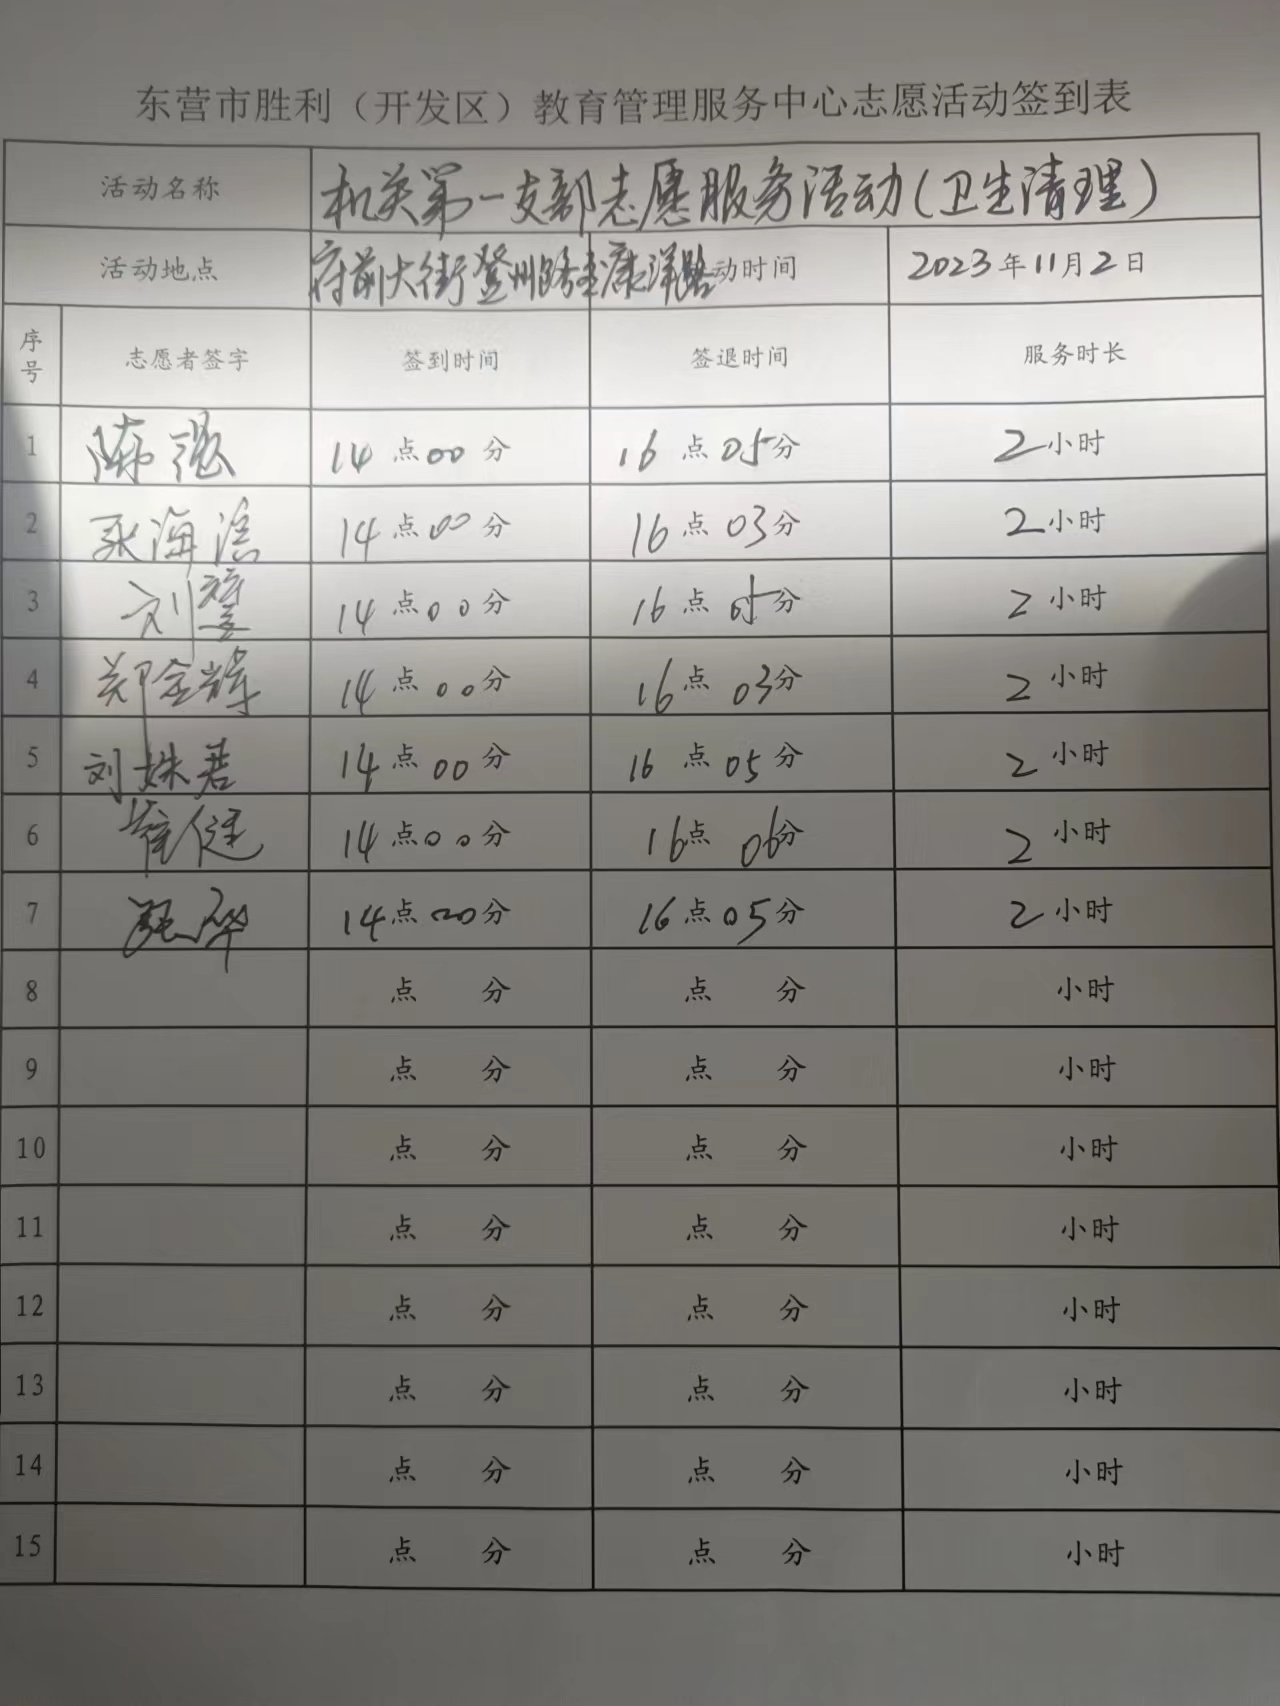 东营市胜利（开发区）教育管理服务中心志愿活动签到表
活动名称 机关第一支部志愿服务活动(卫生清理)
活动地点 府前大街登州路至康洋路 动时间 2023年11月2日
序号 志愿者签字 签到时间 签退时间 服务时长
1 陈强 14点00分 16点05分 2小时
2 海 14点00分 16点03分 2小时
3 刘 14点00分 16点05分 2小时
4 郑金辉 14点00分 16点03分 2小时
5 刘姝君 14点00分 16点05分 2小时
6 崔健 14点00分 16点06分 2小时
7 14点00分 16点05分 2小时
8 点 分 点 分 小时
9 点 分 点 分 小时
10 点 分 点 分 小时
11 点 分 点 分 小时
12 点 分 点 分 小时
13 点 分 点 分 小时
14 点 分 点 分 小时
15 点 分 点 分 小时